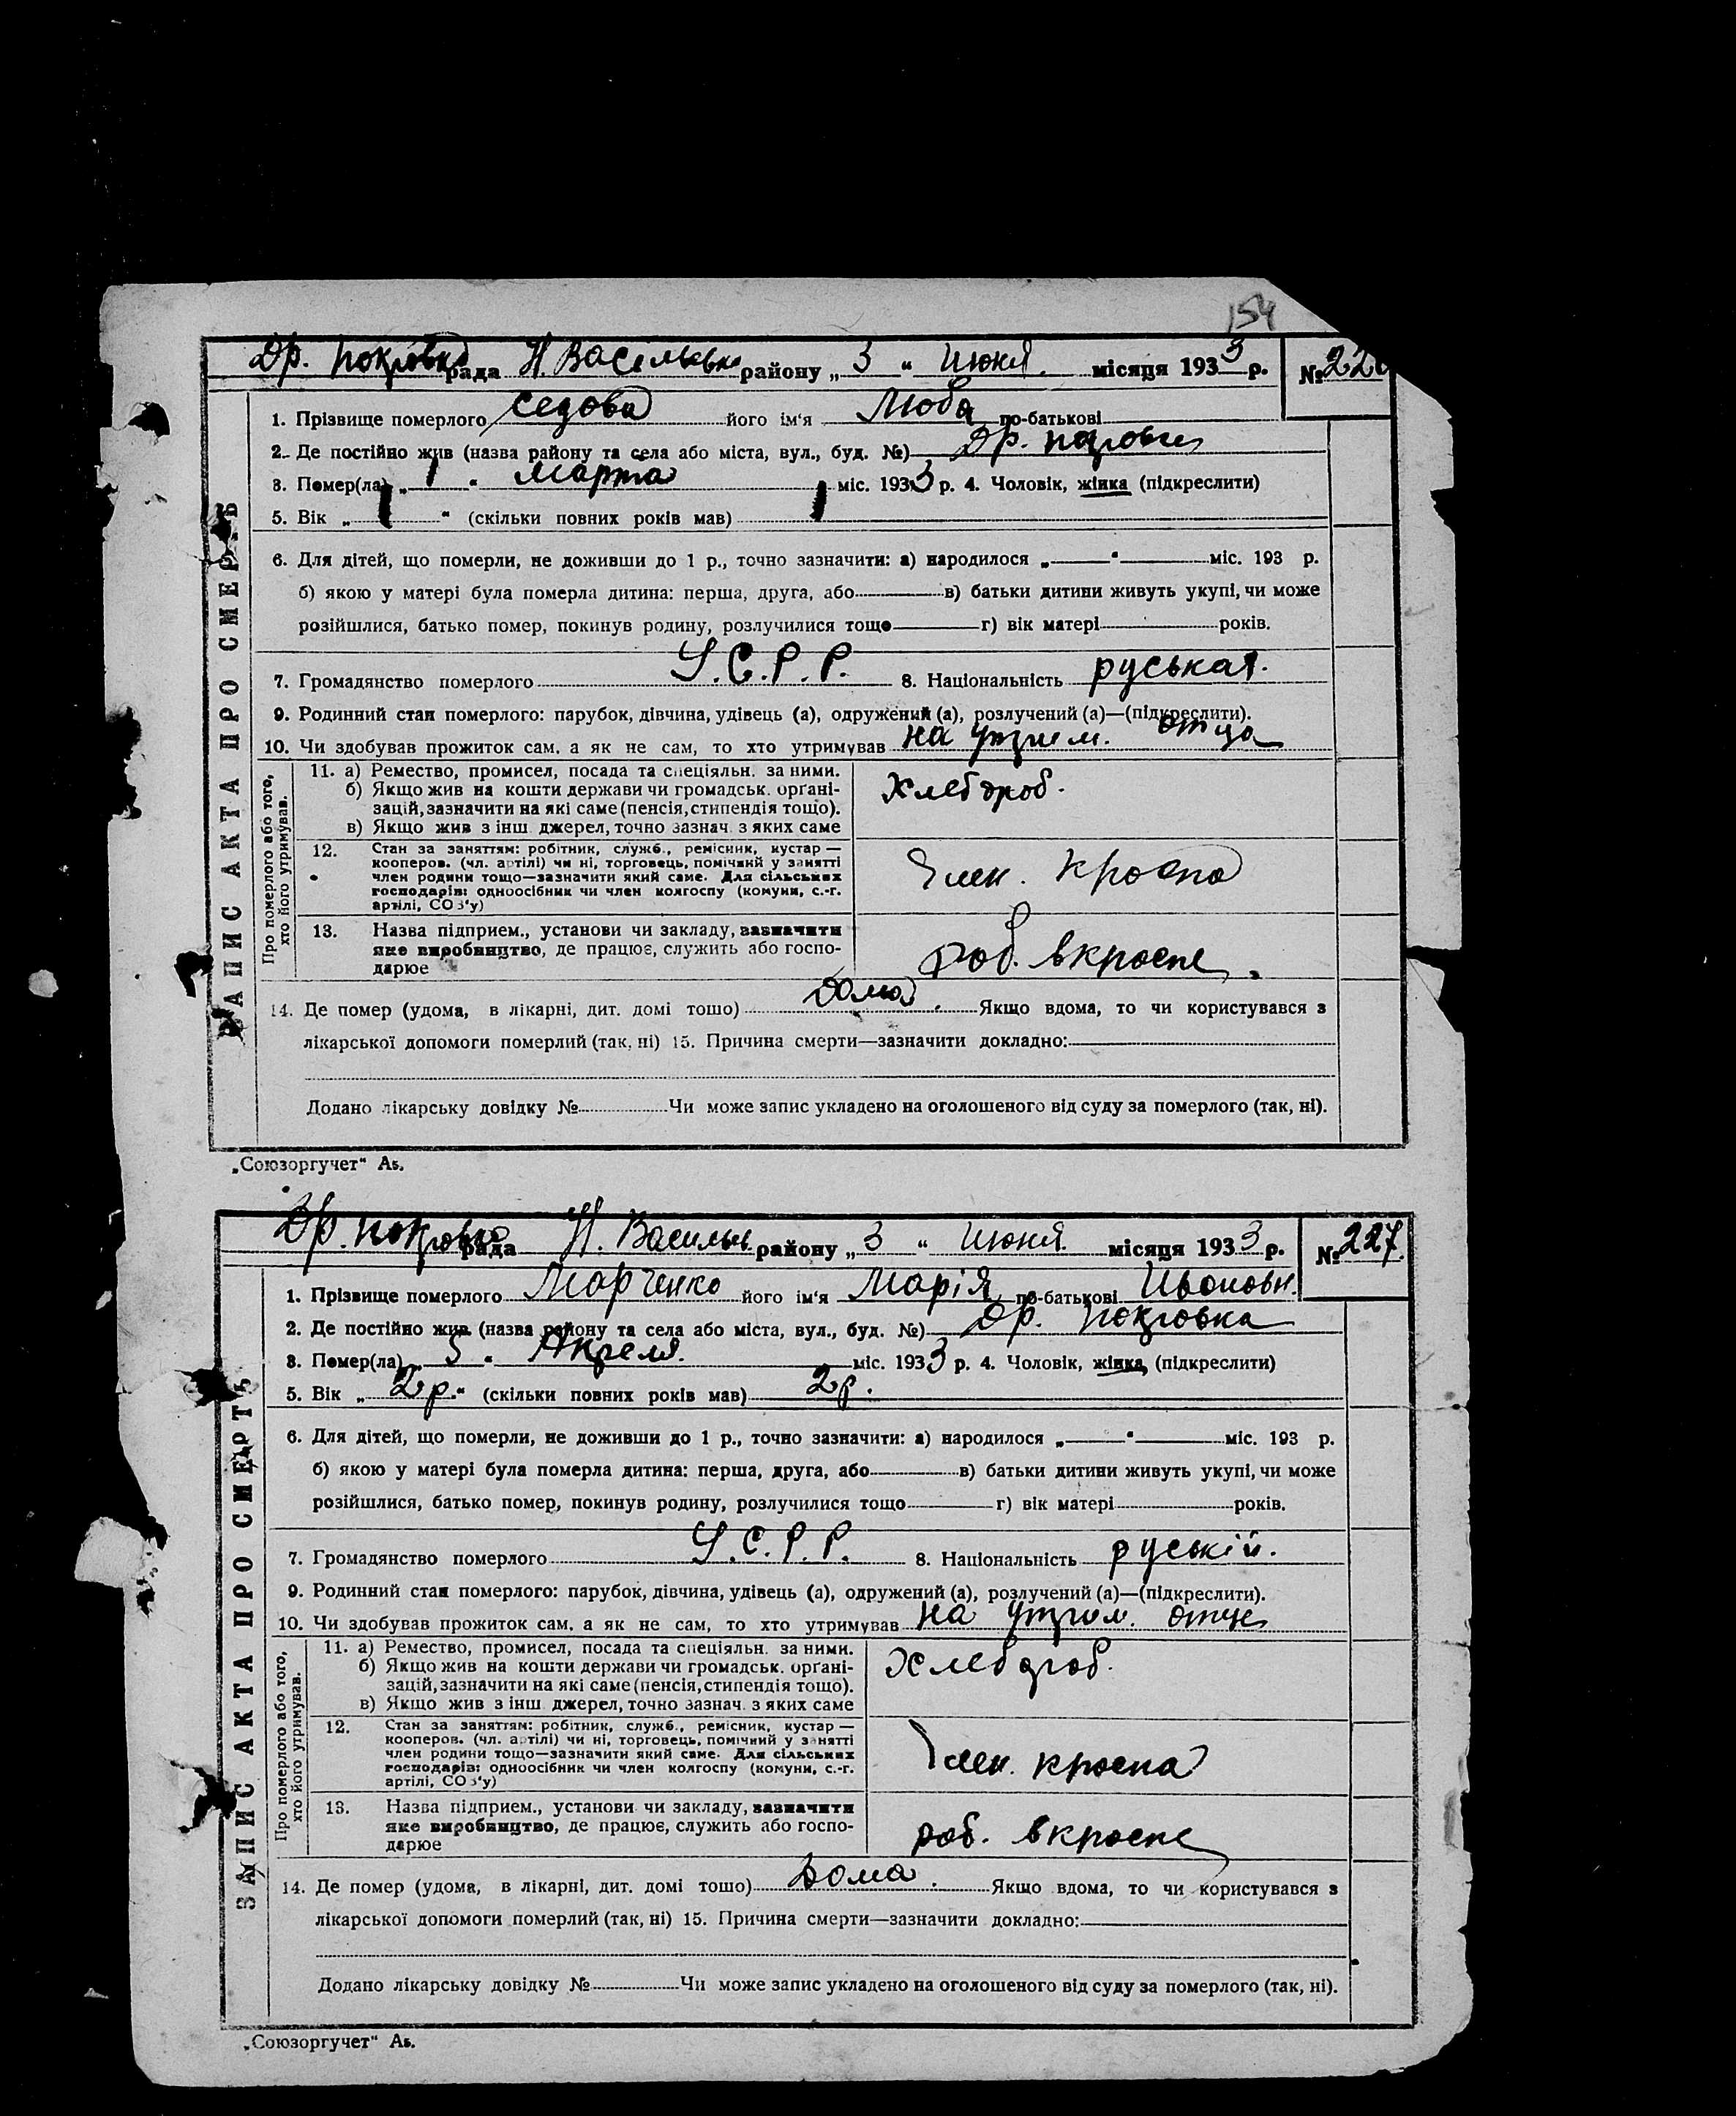 154
Др. Покровка рада Н. Васільевк району „ 3 “ Июня місяця 1933 р. № 226
1. Прізвище померлого Седова його ім'я Люба по-батькові
2. Де постійно жив (назва району та села або міста, вул., буд. №) Др. покровк
3. Помер(ла) „ 1 “ Марта міс. 1933 р. 4. Чоловік, жінка (підкреслити)
5. Вік „ 1 “ (скільки повних років мав) 1
6. Для дітей, що померли, не доживши до 1 р., точно зазначити: а) народилося „ “ міс. 193 р.
б) якою у матері була померла дитина: перша, друга, або в) батьки дитини живуть укупі, чи може
розійшлися, батько помер, покинув родину, розлучилися тощо г) вік матері років.
7. Громадянство померлого У.С.Р.Р. 8. Національність руськая.
9. Родинний стан померлого: парубок, дівчина, удівець (а), одружений (а), розлучений (а)—(підкреслити).
10. Чи здобував прожиток сам, а як не сам, то хто утримував на утрим. отца
Про померлого або того, хто його утримував.
11. а) Ремество, промисел, посада та спеціяльн. за ними.
б) Якщо жив на кошти держави чи громадськ. орґані-
зацій, зазначити на які саме (пенсія, стипендія тощо).
в) Якщо жив з інш джерел, точно зазнач. з яких саме
Хлебороб.
12. Стан за заняттям: робітник, служб., ремісник, кустар —
кооперов. (чл. артілі) чи ні, торговець, помічний у занятті
член родини тощо—зазначити який саме. Для сільських
господарів: одноосібник чи член колгоспу (комуни, с.-г.
артілі, СОЗ'у)
Член.
13. Назва підприєм., установи чи закладу, зазначити
яке виробництво, де працює, служить або госпо-
дарює
роб. в
14. Де помер (удома, в лікарні, дит. домі тошо) Дома. Якщо вдома, то чи користувався з
лікарської допомоги померлий (так, ні) 15. Причина смерти—зазначити докладно:
Додано лікарську довідку № Чи може запис укладено на оголошеного від суду за померлого (так, ні).
ЗАПИС АКТА ПРО СМЕРТЬ
„Союзоргучет“ А5.
Др. Покровка рада Н. Васильев району „ 3 “ Июня місяця 1933 р. № 227.
1. Прізвище померлого Марченко його ім'я Марія по-батькові Ивановн.
2. Де постійно жив (назва району та села або міста, вул., буд. №) Др. Покровка
3. Помер(ла) „ 5 “ Апреля. міс. 1933 р. 4. Чоловік, жінка (підкреслити)
5. Вік „ 2 р. “ (скільки повних років мав) 2 р.
6. Для дітей, що померли, не доживши до 1 р., точно зазначити: а) народилося „ “ міс. 193 р.
б) якою у матері була померла дитина: перша, друга, або в) батьки дитини живуть укупі, чи може
розійшлися, батько помер, покинув родину, розлучилися тощо г) вік матері років.
7. Громадянство померлого У.С.Р.Р. 8. Національність руський.
9. Родинний стан померлого: парубок, дівчина, удівець (а), одружений (а), розлучений (а)—(підкреслити).
10. Чи здобував прожиток сам, а як не сам, то хто утримував на утрим. отце
Про померлого або того, хто його утримував.
11. а) Ремество, промисел, посада та спеціяльн. за ними.
б) Якщо жив на кошти держави чи громадськ. орґані-
зацій, зазначити на які саме (пенсія, стипендія тощо).
в) Якщо жив з інш джерел, точно зазнач. з яких саме
Хлебороб.
12. Стан за заняттям: робітник, служб., ремісник, кустар —
кооперов. (чл. артілі) чи ні, торговець, помічний у занятті
член родини тощо—зазначити який саме. Для сільських
господарів: одноосібник чи член колгоспу (комуни, с.-г.
артілі, СОЗ'у)
Член.
13. Назва підприєм., установи чи закладу, зазначити
яке виробництво, де працює, служить або госпо-
дарює
роб. в
14. Де помер (удома, в лікарні, дит. домі тошо) Дома. Якщо вдома, то чи користувався з
лікарської допомоги померлий (так, ні) 15. Причина смерти—зазначити докладно:
Додано лікарську довідку № Чи може запис укладено на оголошеного від суду за померлого (так, ні).
ЗАПИС АКТА ПРО СМЕРТЬ
„Союзоргучет“ А5.